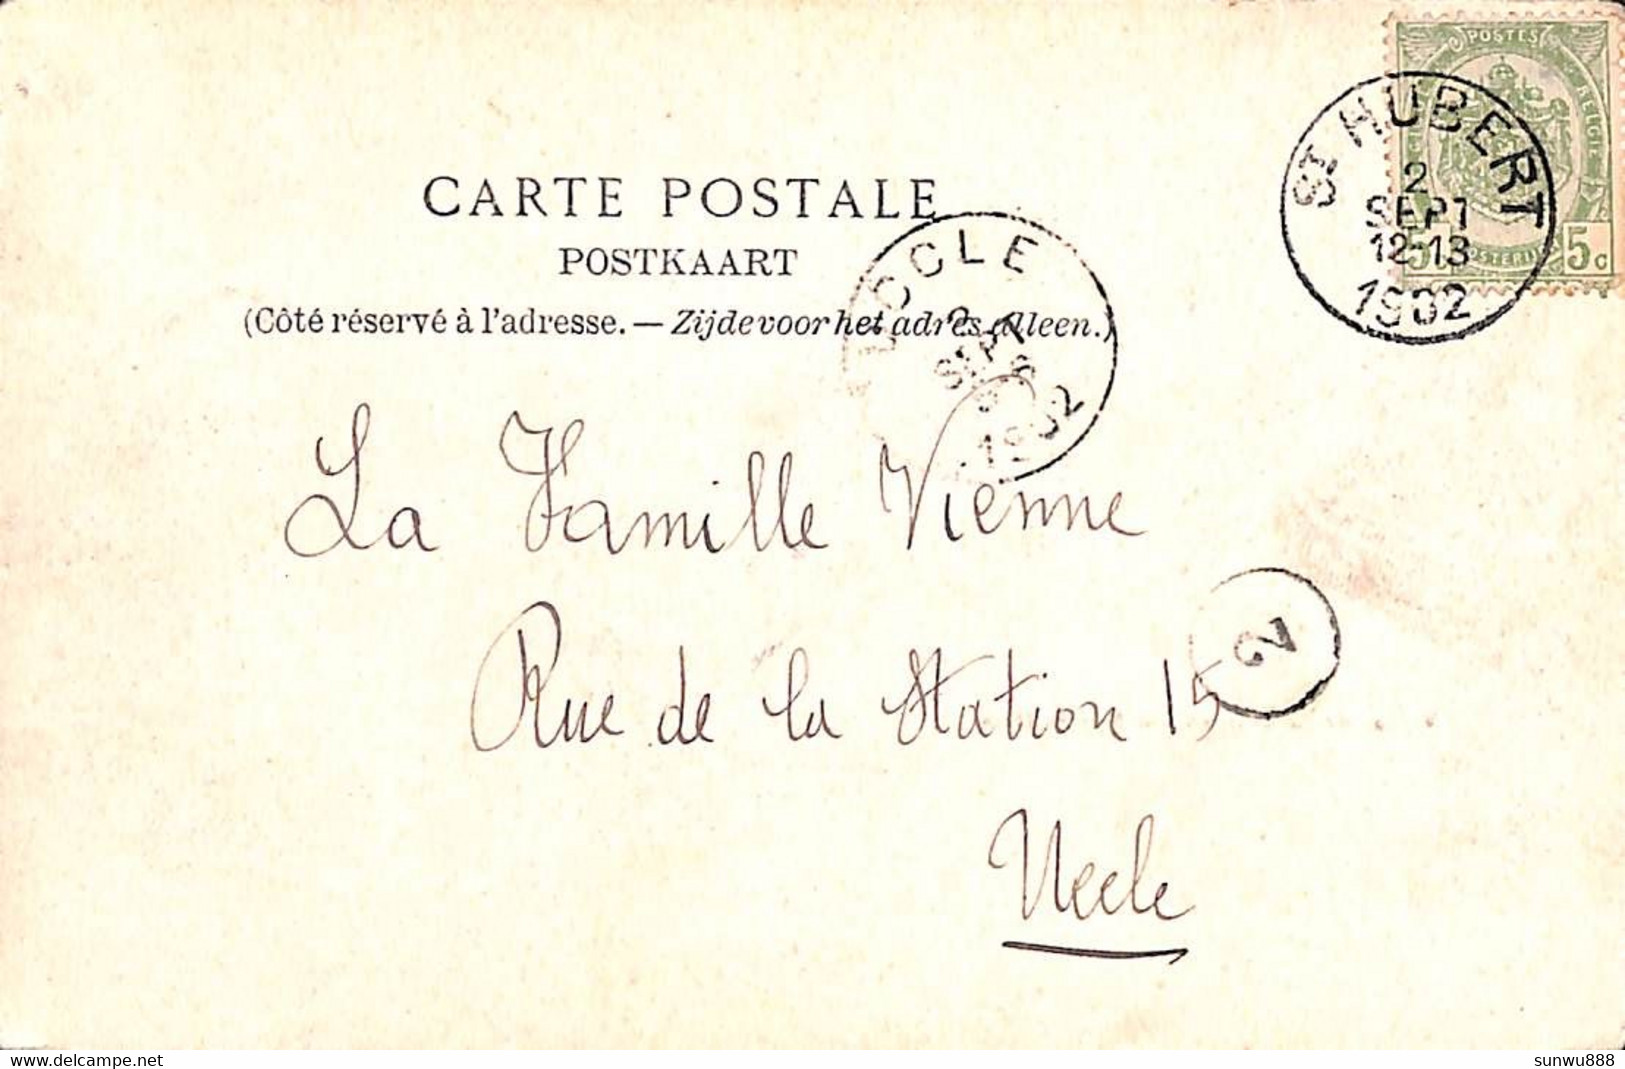 POSTES
BELGIE
5 POSTERIJ 5c
ST HUBERT
2
SEPT
12-13
1902
CARTE POSTALE
POSTKAART
(Côté réservé à l'adresse. — Zijde voor het adres alleen.)
UCCLE
2
SEPT
1902
La Famille Vienne
Rue de la Station 15
Uccle
delcampe.net
sunwu888